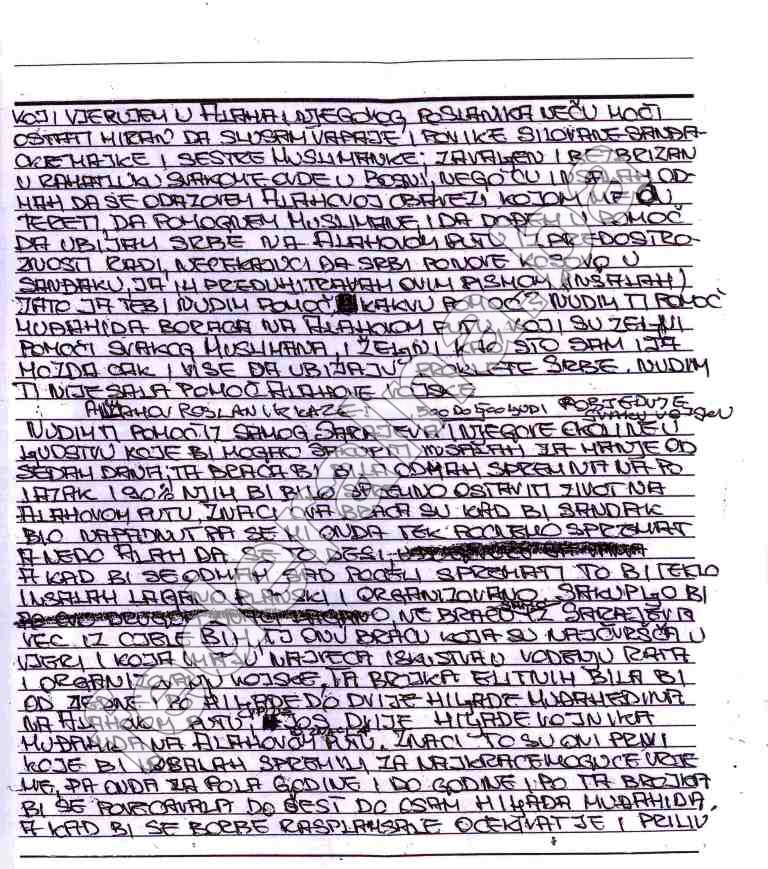 KOJI VJERUJEM U ALAHA I NJEGOVOG POSLANIKA NEČU MOČI
OSTATI MIRAN DA SLUŠAM VAPAJE I POVIKE SILOVANE SANDA-
ČKE MAJKE I SESTRE MUSLIMANKE; ZAVALJEN I BEZBRIZAN
U RAHATLUKU SVAKOME OVDE U BOSNI, NEGO ČU INŠALAH OD-
MAH DA SE ODAZOVEM ALAHOVOJ OBAVEZI KOJOM ME ON
TERETI, DA POMOGNEM MUSLIMANE I DA DOĐEM U POMOČ
DA UBIJAM SRBE NA ALAHOVOM PUTU I PREDOSTRO-
ŽNOSTI RADI, NEČEKAJUĆI DA SRBI PONOVE KOSOVO U
SANDAKU, JA IH PREDUHITRAVAM OVIM PISMOM (INŠALAH)
ZATO JA TEBI NUDIM POMOČ, KAKVU POMOČ? NUDIM TI POMOČ
MUĐAHIDA BORACA NA ALAHOVOM PUTU, KOJI SU ŽELJNI
POMOČI SVAKOG MUSLIMANA, I ŽELJNI KAO ŠTO SAM I JA
MOŽDA ČAK I VIŠE DA UBIJAJU PROKLETE SRBE. NUDIM
TI NIJE ŠALA POMOČ ALAHOVE VOJSKE
ALAHOV POSLANIK KAŽE: LJUDI POBJEĐUJE
SVAKU VOJSKU
NUDIM TI POMOČ IZ SAMOG SARAJEVA I NJEGOVE OKOLINE U
LJUDSTVU KOJE BI MOGAO SAKUPITI INŠALAH ZA MANJE OD
SEDAM DANA; TA BRAČA BI BILA ODMAH SPREMNA NA PO
LAZAK I 90% NJIH BI BILO SPREMNO OSTAVITI ŽIVOT NA
ALAHOVOM PUTU, ZNAČI OVA BRAČA SU KAD BI SANDAK
BIO NAPADNUT PA SE MI ONDA TEK POČNEMO SPREMAT
A NEDO ALAH DA SE TO DESI,
A KAD BI SE ODMAH SAD POČELI SPREMATI TO BI TEKLO
INŠALAH LAGANO PLANSKI I ORGANIZOVANO, SAKUPILO BI
NE BRAČU SAMO IZ SARAJEVA
VEČ IZ CIJELE BIH, TJ ONU BRAČU KOJA SU NAJČVRŠČA U
VJERI I KOJA IMAJU NAJVEČA ISKUSTVA U VOĐENJU RATA
I ORGANIZOVANJU VOJSKE, TA BROJKA ELITNIH BILA BI
OD JEDNE I PO HILJADE DO DVIJE HILJADE MUĐAHEDINA
NA ALAHOVOM PUTU, I JOŠ DVIJE HILJADE VOJNIKA
MUĐAHIDA NA ALAHOVOM PUTU. ZNAČI TO SU ONI PRVI
KOJE BI SPREMNI, ZA NAJKRAČE MOGUČE VRIJE
ME, PA ONDA ZA POLA GODINE I DO GODINE I PO TA BROJKA
BI SE POVEČAVALA DO ŠEST DO OSAM HILJADA MUĐAHIDA.
A KAD BI SE BORBE RASPLAMSALE OČEKIVAT JE I PRILIV